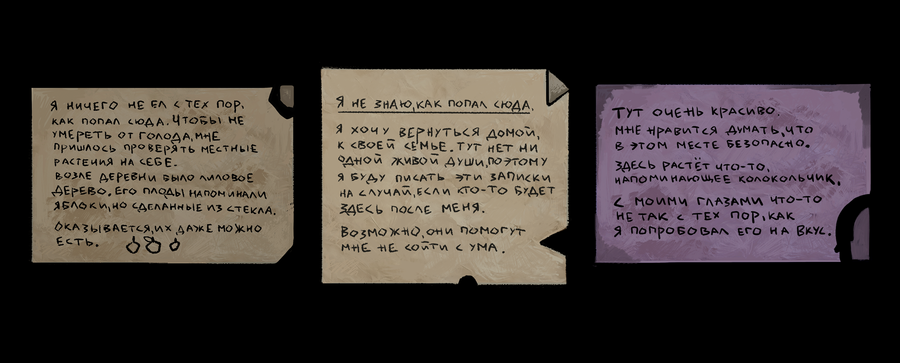 Я ничего не ел с тех пор,
как попал сюда. Чтобы не
умереть от голода, мне
пришлось проверять местные
растения на себе.
Возле деревни было лиловое
дерево. Его плоды напоминали
яблоки, но сделанные из стекла.
Оказывается, их даже можно
есть.
Я не знаю, как попал сюда.
Я хочу вернуться домой,
к своей семье. Тут нет ни
одной живой души, поэтому
я буду писать эти записки
на случай, если кто-то будет
здесь после меня.
Возможно, они помогут
мне не сойти с ума.
Тут очень красиво.
Мне нравится думать, что
в этом месте безопасно.
Здесь растёт что-то,
напоминающее колокольчик.
С моими глазами что-то
не так с тех пор, как
я попробовал его на вкус.